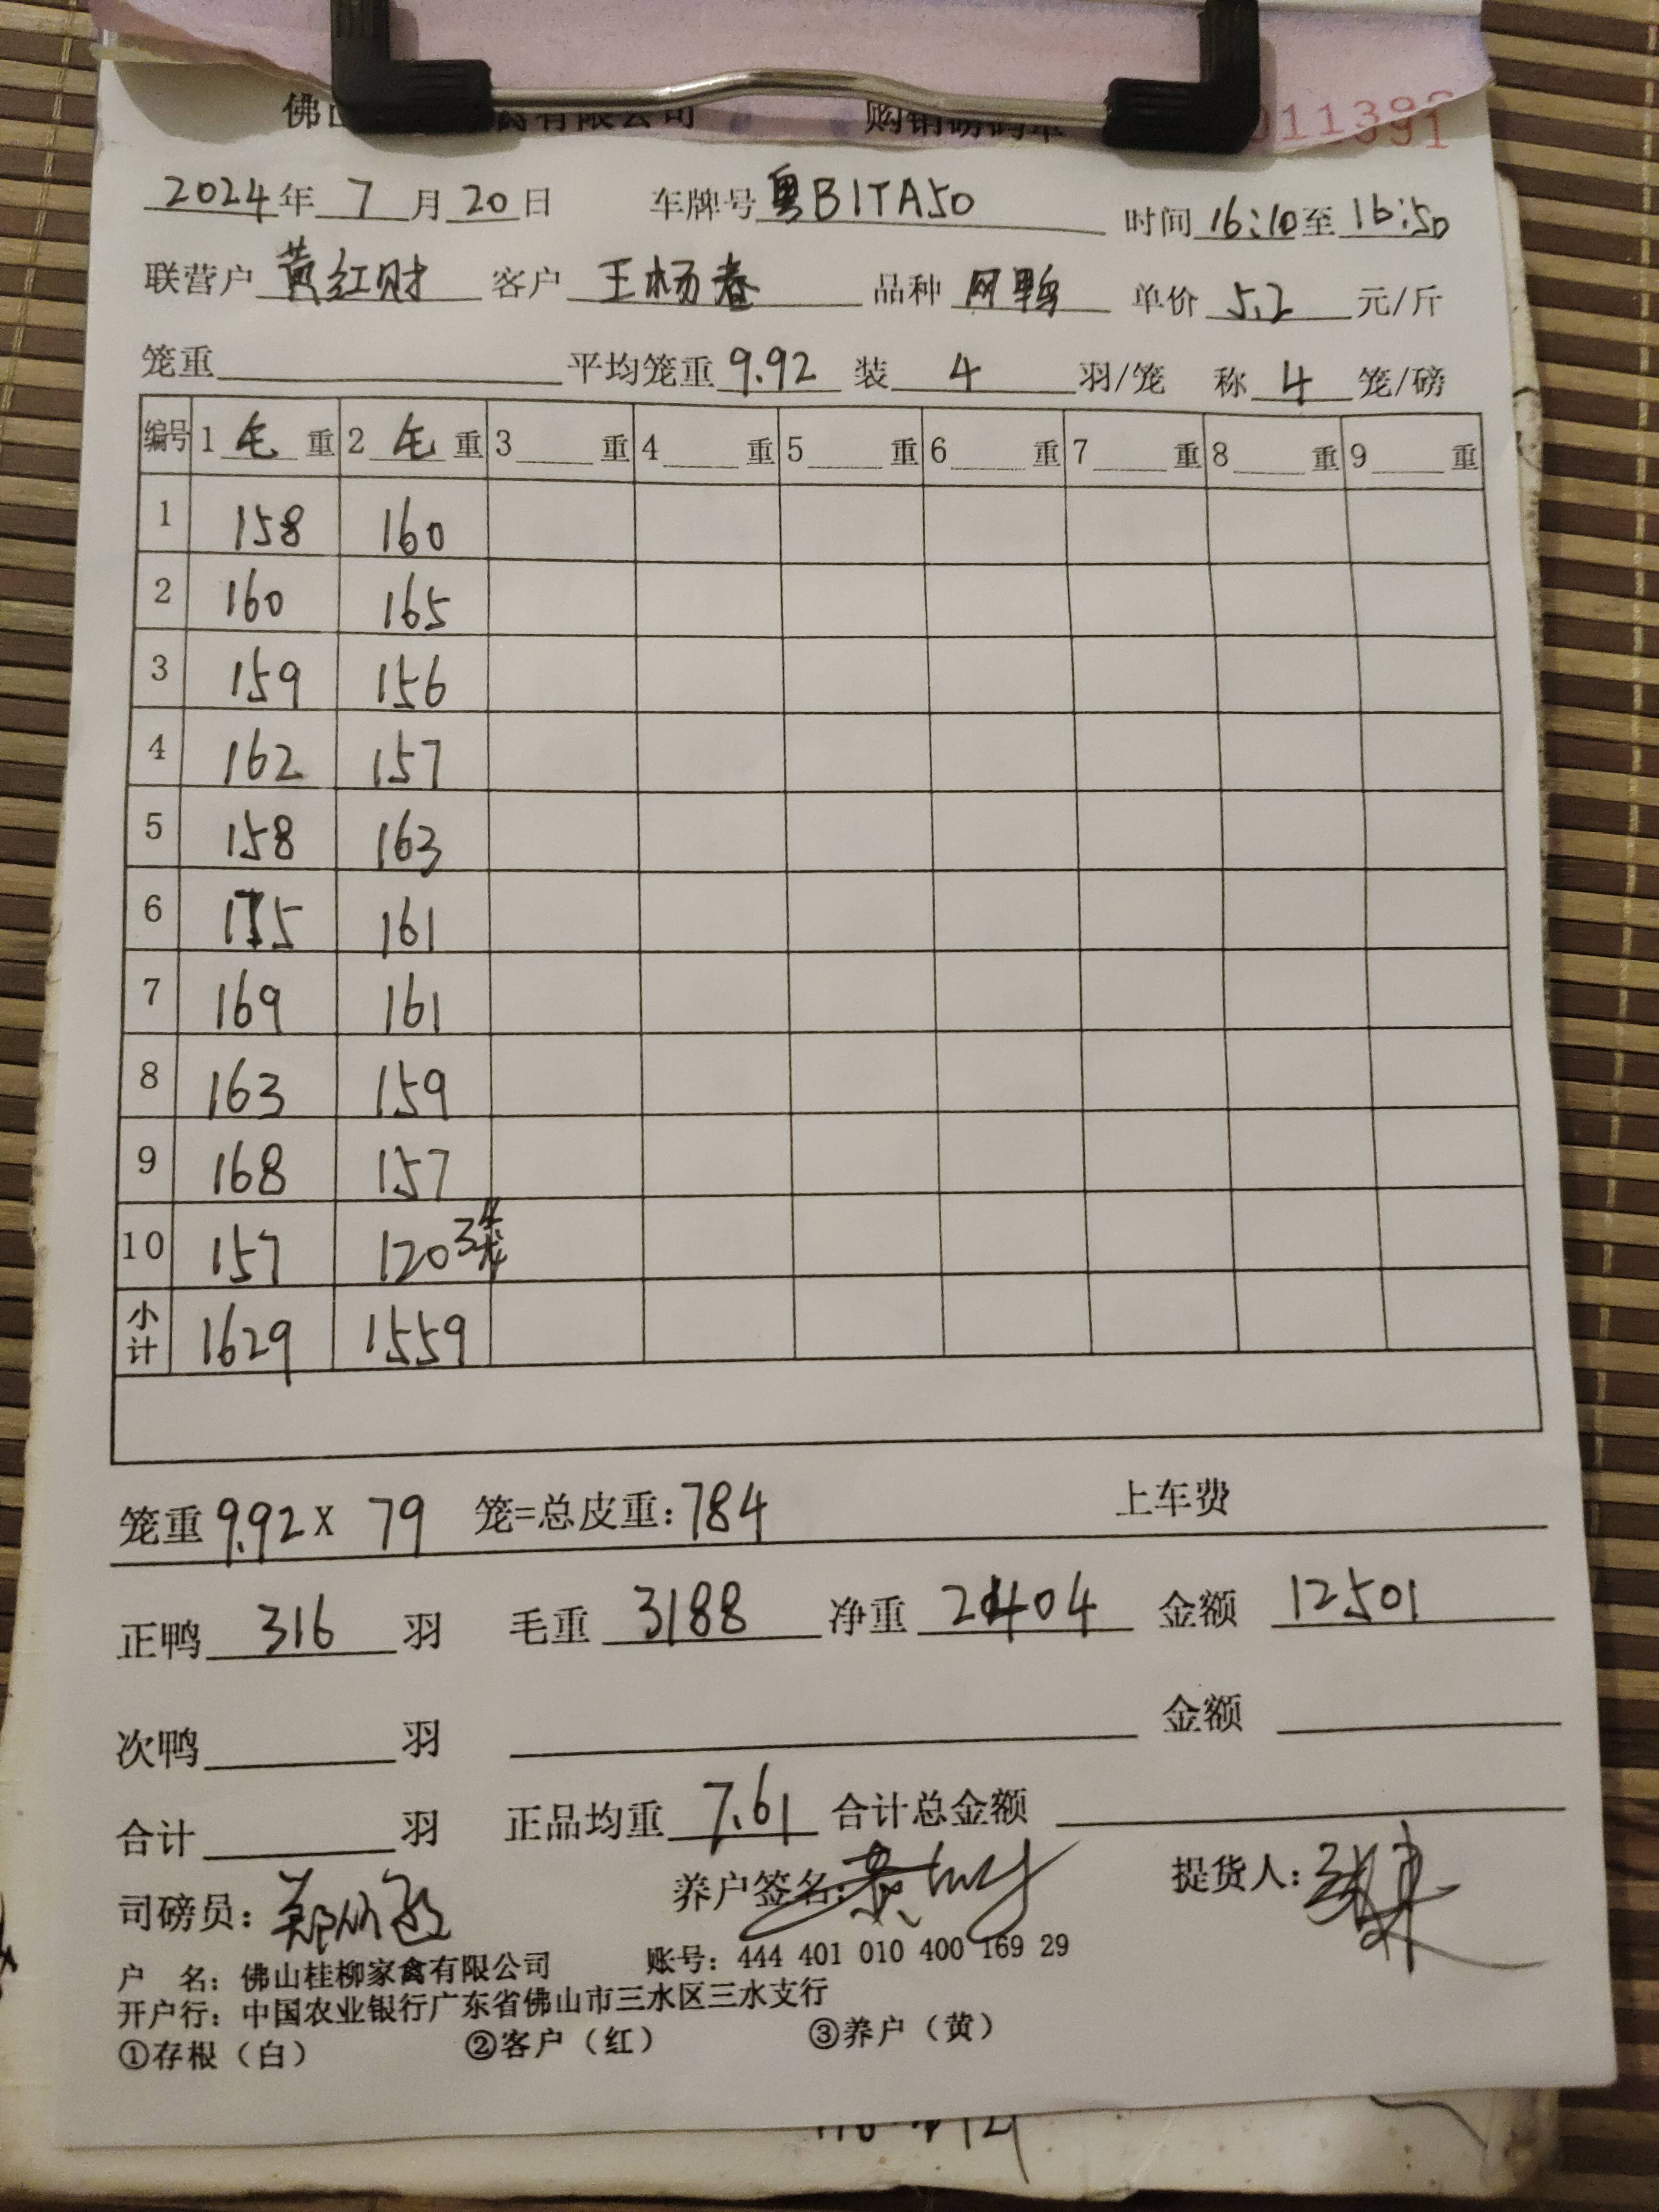 佛山 禽有限公司 购销磅码单 011391
2024年 7 月 20 日 车牌号 粤B1TA50 时间 16:10 至 16:50
联营户 黄红财 客户 王杨春 品种 网鸭 单价 5.2 元/斤
笼重 平均笼重 9.92 装 4 羽/笼 称 4 笼/磅
编号 1 毛 重 2 毛 重 3 重 4 重 5 重 6 重 7 重 8 重 9 重
1 158 160
2 160 165
3 159 156
4 162 157
5 158 163
6 175 161
7 169 161
8 163 159
9 168 157
10 157 120 3笼
小计 1629 1559
笼重 9.92 X 79 笼=总皮重: 784 上车费
正鸭 316 羽 毛重 3188 净重 2404 金额 12501
次鸭 羽 金额
合计 羽 正品均重 7.61 合计总金额
司磅员: 养户签名: 提货人:
户 名: 佛山桂柳家禽有限公司 账号: 444 401 010 400 169 29
开户行: 中国农业银行广东省佛山市三水区三水支行
①存根（白） ②客户（红） ③养户（黄）